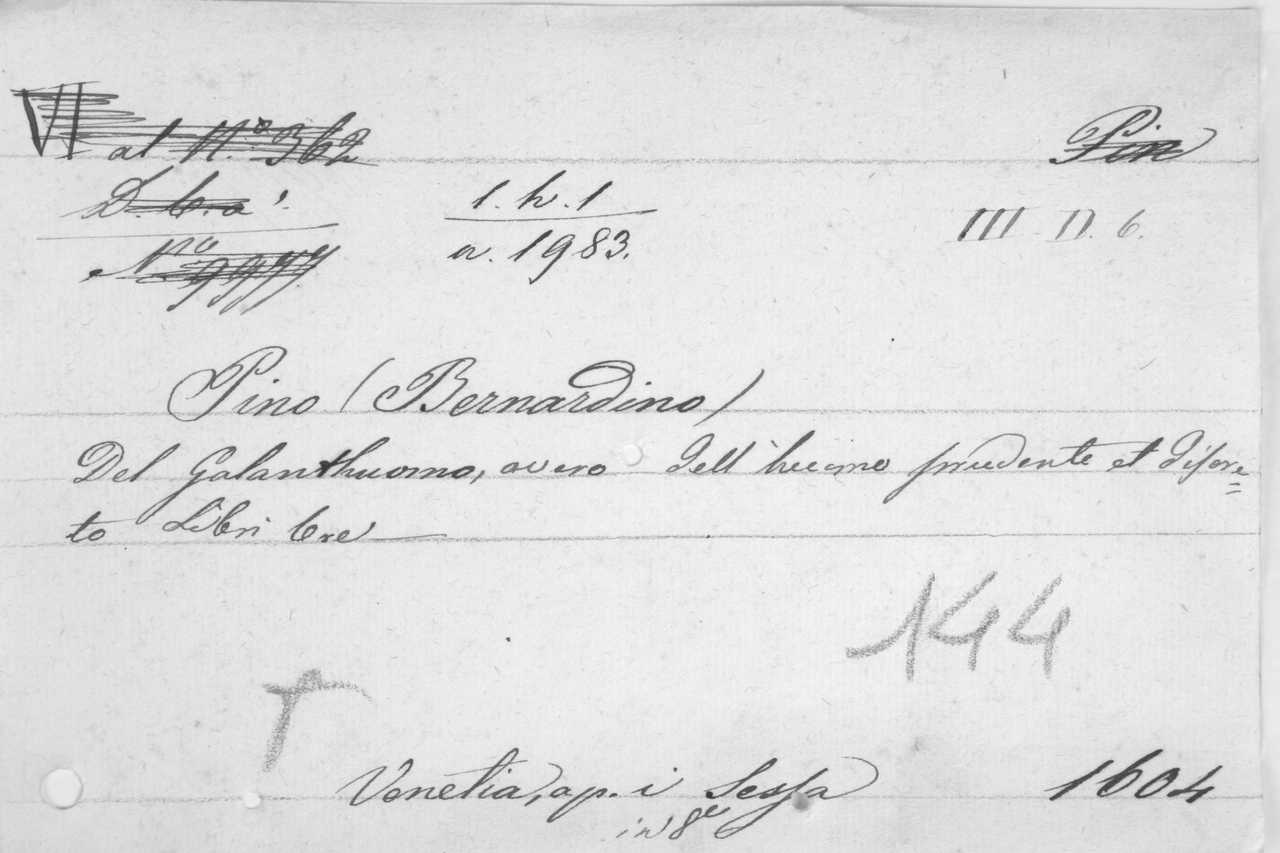 VI al N.º 362
Pin
1. h. 1
III. II. 6.
a. 1983.
Pino (Bernardino)
Del Galanthuomo, overo dell'huomo prudente et discre=
to Libri tre
144
Venetia, ap. i Sessa 1604
in 8º